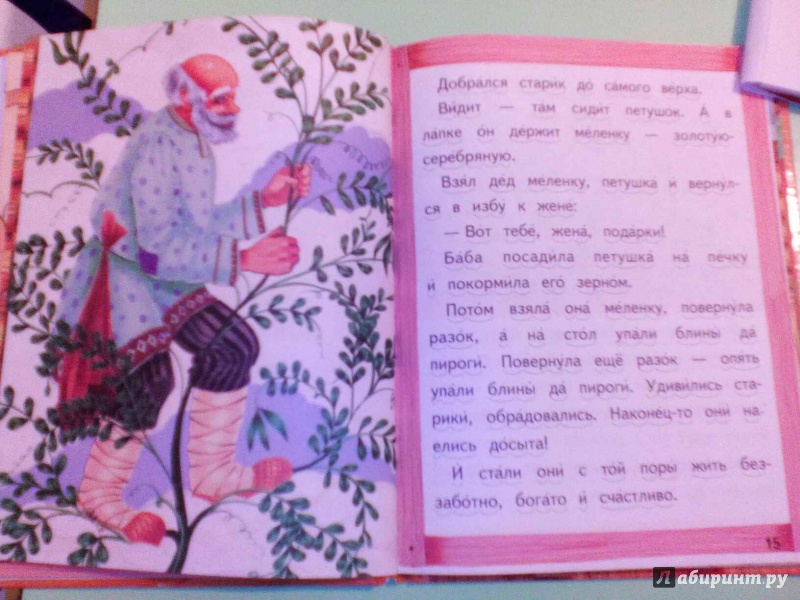 Добра́лся стари́к до́ са́мого ве́рха.
Ви́дит — там сиди́т петушо́к. А́ в
ла́пке о́н де́ржит ме́ленку — золоту́ю-
сере́бряную.
Взя́л де́д ме́ленку, петушка́ и́ верну́л-
ся в избу́ к жене́:
— Вот тебе́, жена́, пода́рки!
Ба́ба посади́ла петушка́ на́ пе́чку
и́ покорми́ла его́ зерно́м.
Пото́м взяла́ она́ ме́ленку, поверну́ла
разо́к, а́ на́ сто́л упа́ли блины́ да́
пироги́. Поверну́ла ещё разо́к — опя́ть
упа́ли блины́ да́ пироги́. Удиви́лись ста-
рики́, обра́довались. Наконе́ц-то они́ на-
е́лись до́сыта!
И́ ста́ли они́ с то́й поры́ жить без-
забо́тно, бога́то и́ сча́стливо.
15
Лабиринт.ру